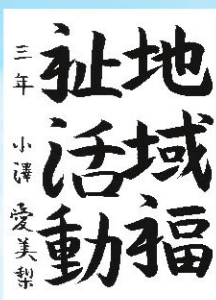 地域福
祉活動
三年 小澤愛美梨